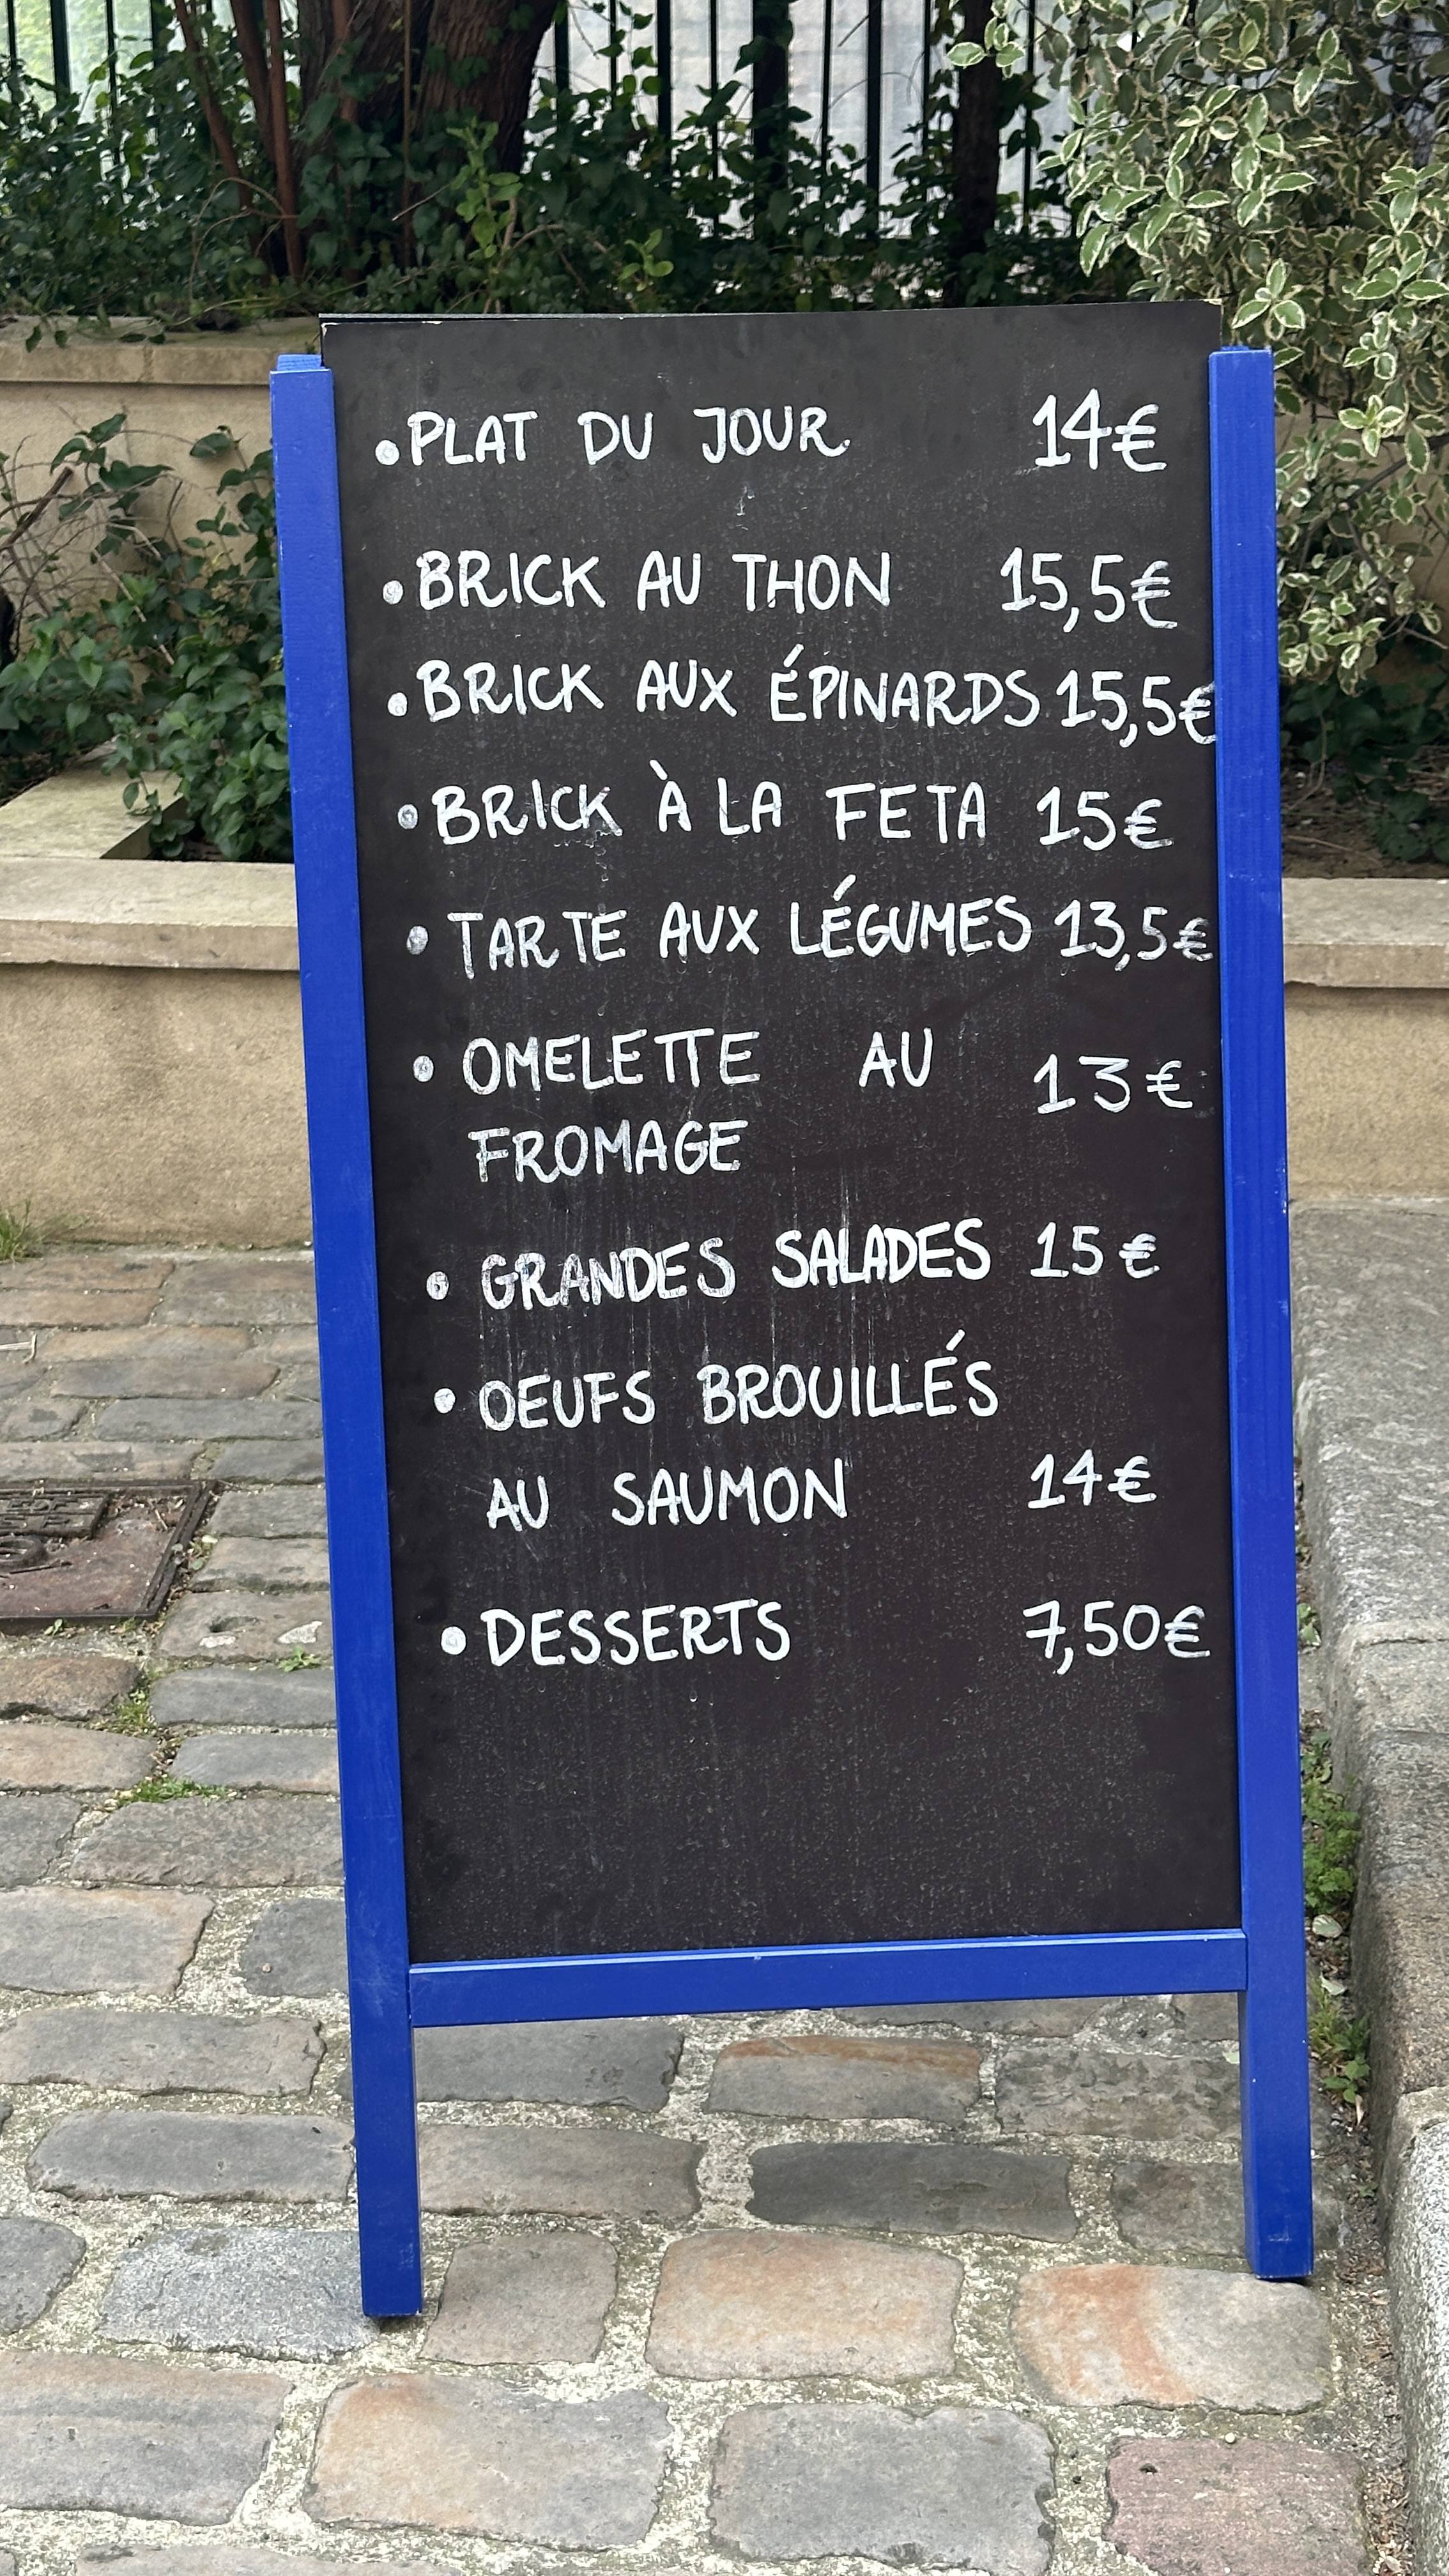 • PLAT DU JOUR 14€
• BRICK AU THON 15,5€
• BRICK AUX ÉPINARDS 15,5€
• BRICK À LA FETA 15€
• TARTE AUX LÉGUMES 13,5€
• OMELETTE AU 13€
FROMAGE
• GRANDES SALADES 15€
• OEUFS BROUILLÉS
AU SAUMON 14€
• DESSERTS 7,50€